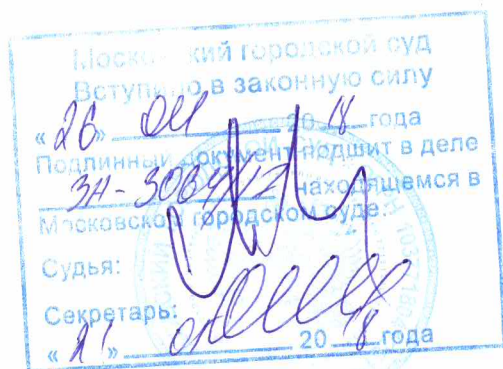 Московский городской суд
Вступило в законную силу
« 26 » 04 20 18 года
Подлинный документ подшит в деле
находящемся в
Московском городском суде.
Судья:
Секретарь:
« » 20 18 года